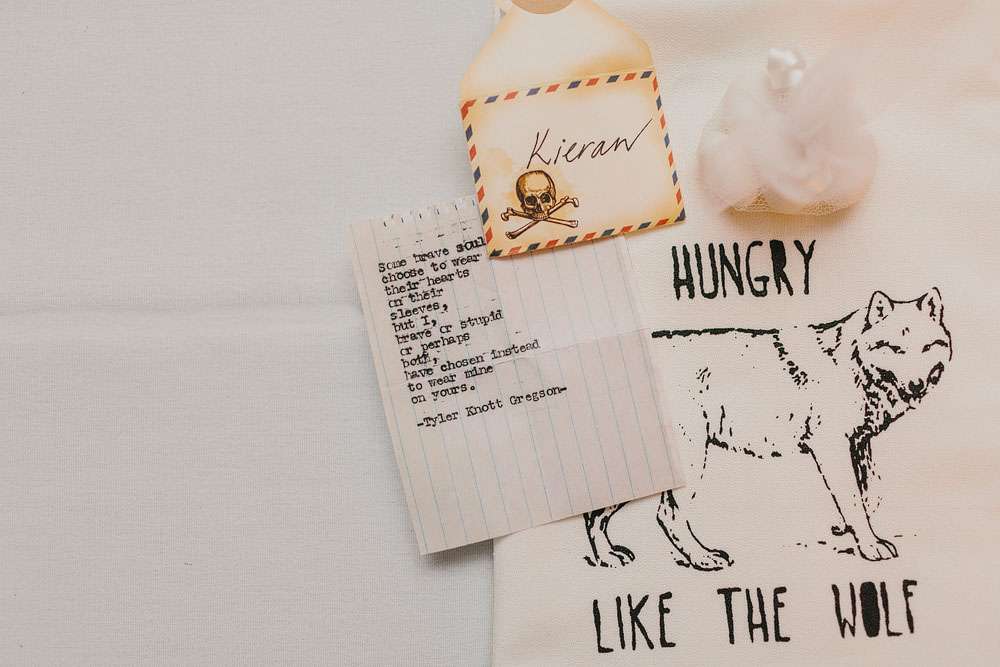 Kieran
Some brave soul
choose to wear
their hearts
on their
sleeves,
but I,
brave or stupid
or perhaps
both,
have chosen instead
to wear mine
on yours.
-Tyler Knott Gregson-
HUNGRY
LIKE THE WOLF